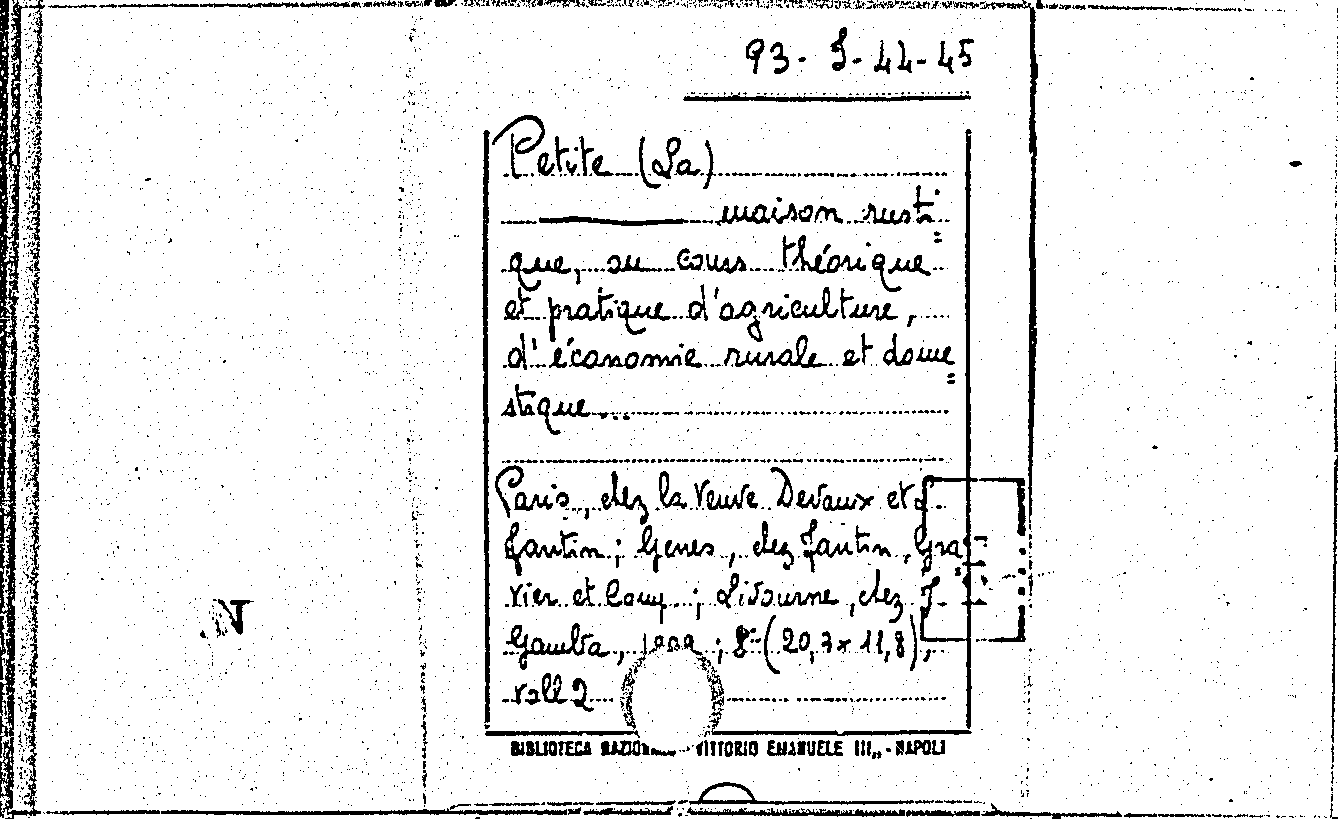 93- J-44-45
Petite (La)
maison rusti=
que, ou cours théorique
et pratique d'agriculture,
d'économie rurale et dome=
stique...
Paris, chez la Veuve Devaux et
Fantin; Genes, chez Fantin, Gra=
vier et Comp; Livourne, chez J.
Gamba, ; 8°(20,3x11,8),
voll 2
BIBLIOTECA VITTORIO EMANUELE III,, - NAPOLI
N